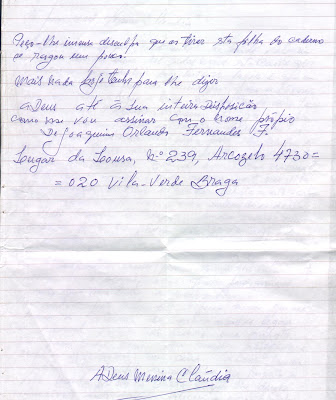 Peço-lhe imensa desculpa que ao tirar esta folha do caderno
se rasgou um pouco.
mais nada para lhe dizer
a Deus até à sua inteira Disposição
como vou assinar com o nome própio
De Joaquim Orlando Fernandes F.
Lugar da Lousa, n.º 239, Arcozelo 4730=
=020 Vila-Verde Braga
A Deus Menina Claúdia